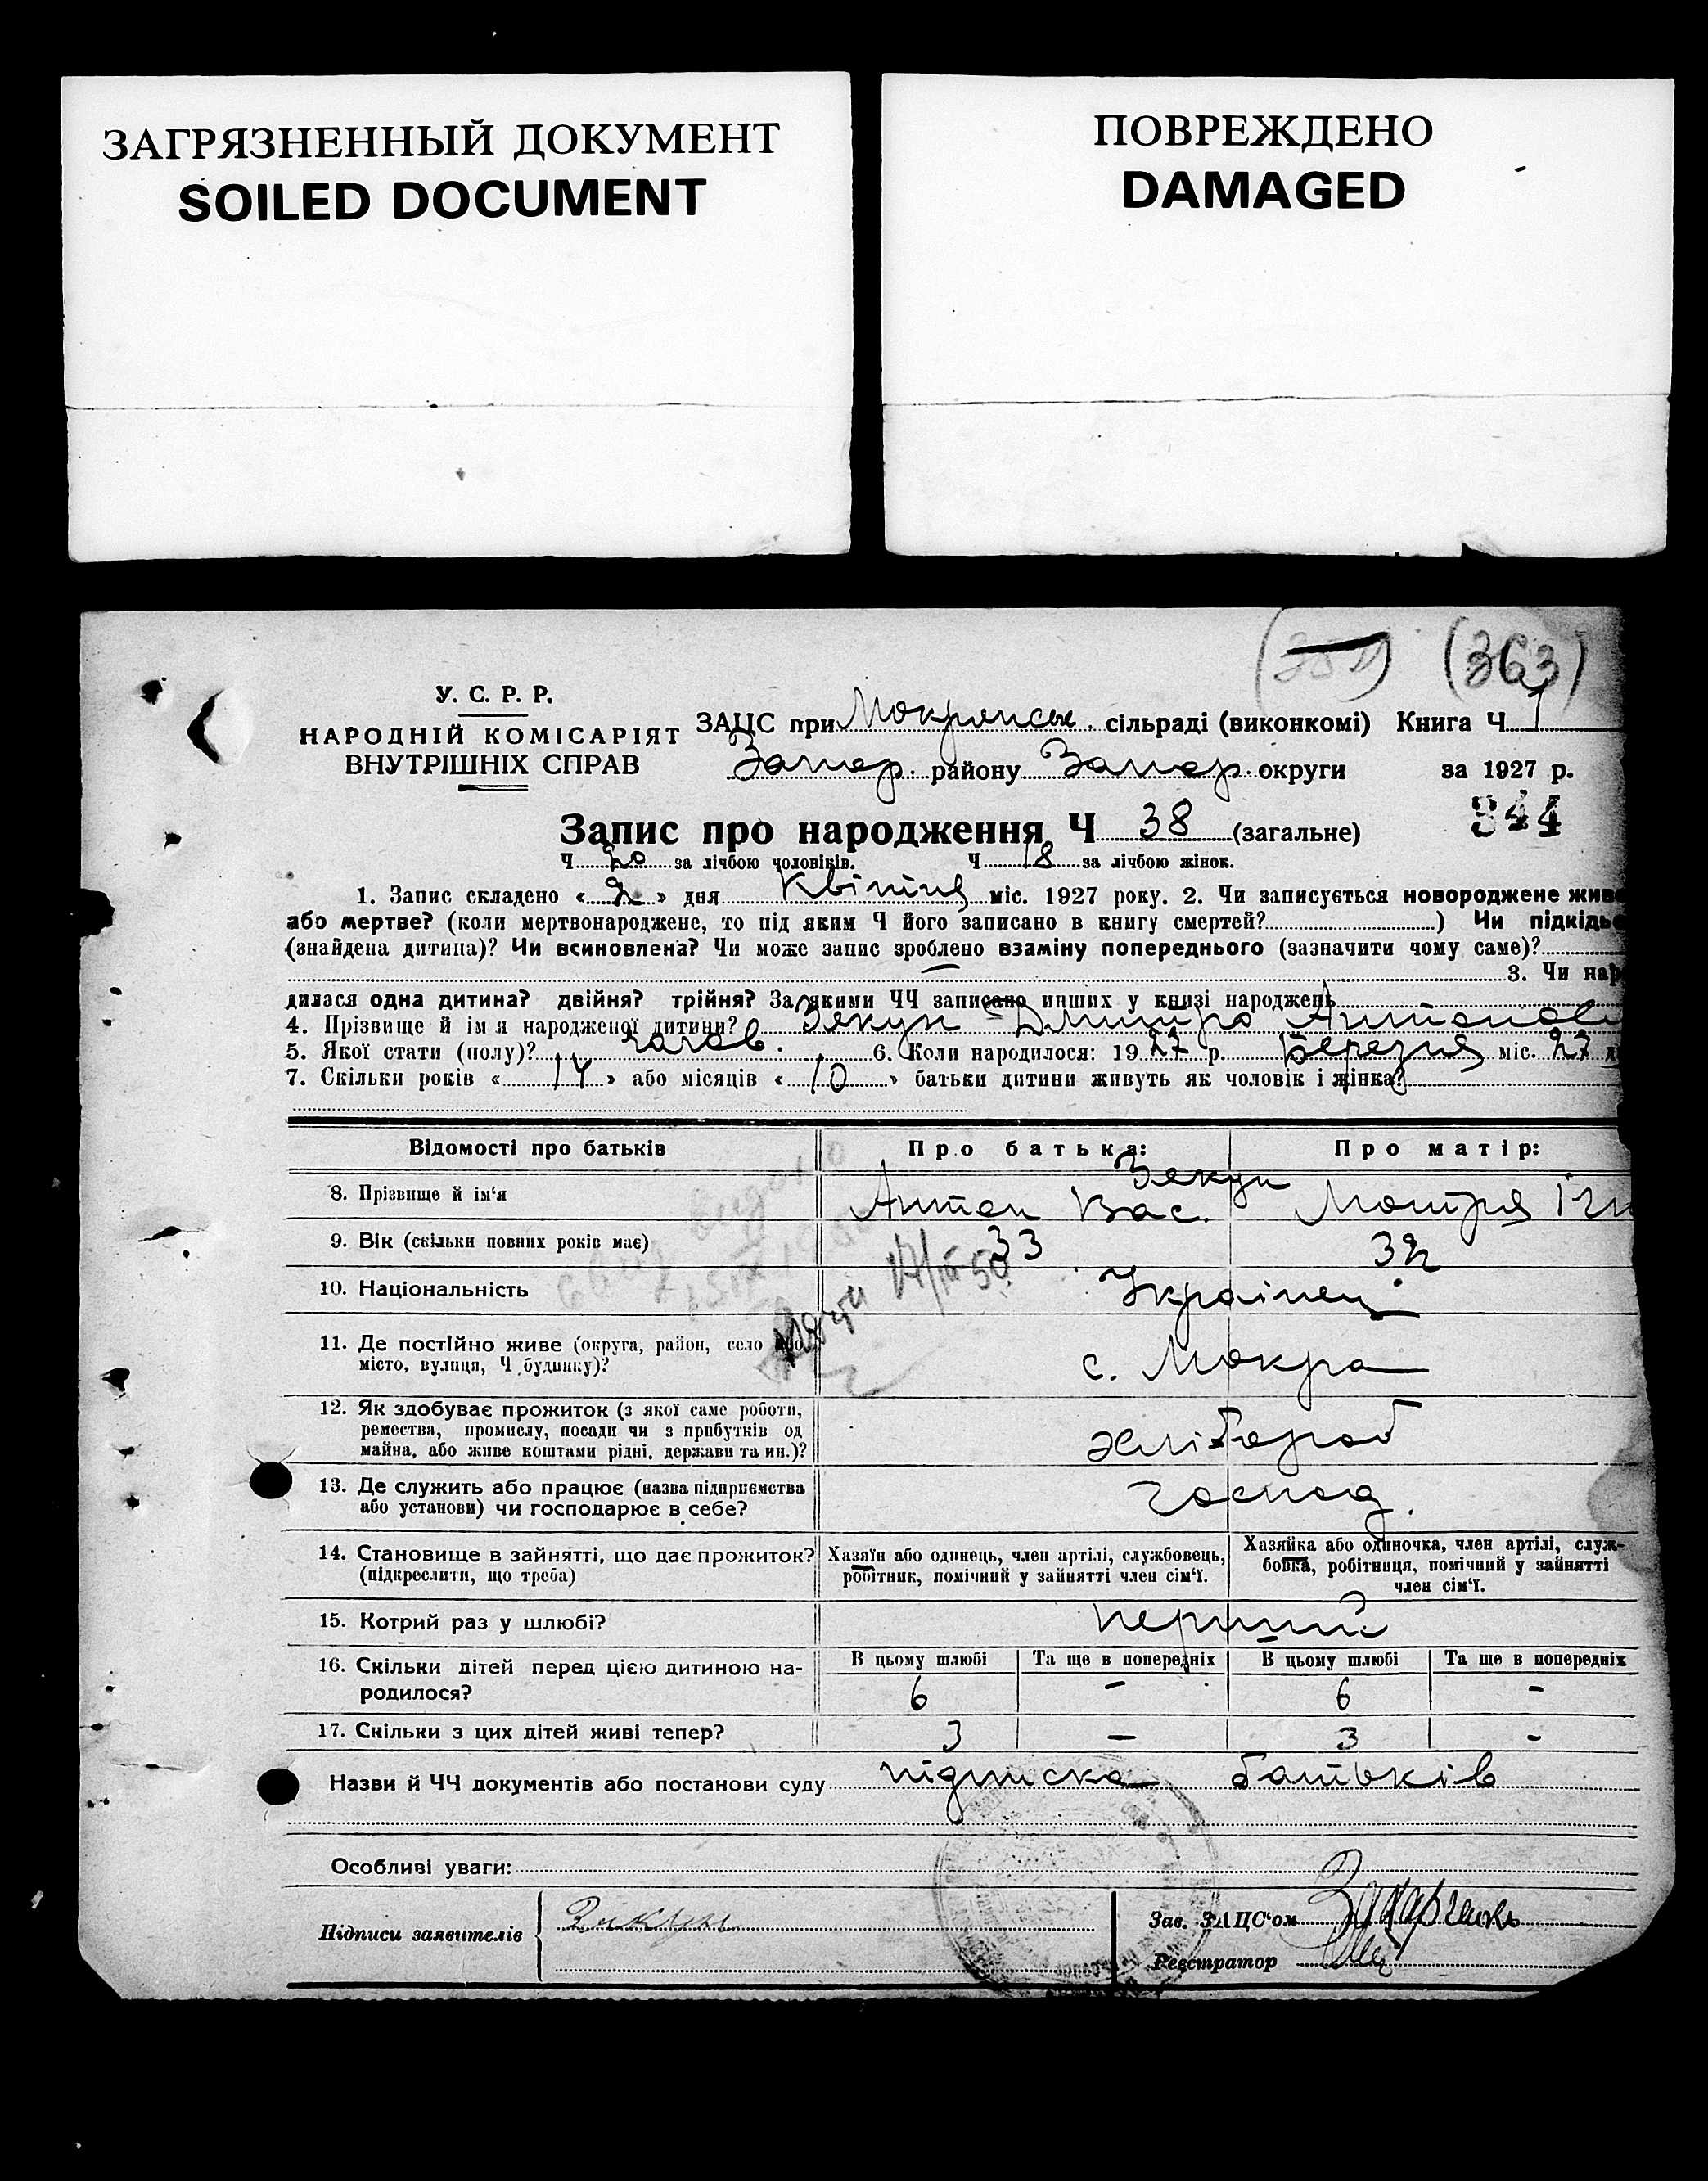 ЗАГРЯЗНЕННЫЙ ДОКУМЕНТ
SOILED DOCUMENT
ПОВРЕЖДЕНО
DAMAGED
(363)
У. С. Р. Р.
НАРОДНІЙ КОМІСАРІЯТ
ВНУТРІШНІХ СПРАВ
ЗАЦС при Мокрянськ. сільраді (виконкомі) Книга Ч. 1
Запор. району Запор. округи за 1927 р.
Запис про народження Ч 38 (загальне) 944
Ч 20 за лічбою чоловіків. Ч 18 за лічбою жінок.
1. Запис складено « 2 » дня Квітня міс. 1927 року. 2. Чи записується новороджене живе
або мертве? (коли мертвонароджене, то під яким Ч його записано в книгу смертей? ) Чи підкідьо
(знайдена дитина)? Чи всиновлена? Чи може запис зроблено взаміну попереднього (зазначити чому саме)?
3. Чи нар
дилася одна дитина? двійня? трійня? За якими ЧЧ записано инших у книзі народжень
4. Прізвище й ім'я народженої дитини? Зякун Дмитро Антонови
5. Якої стати (полу)? чолов. 6. Коли народилося: 1927 р. Березня міс. 27 д
7. Скільки років « 14 » або місяців « 10 » батьки дитини живуть як чоловік і жінка?
Відомості про батьків Про батька: Про матір:
8. Прізвище й ім'я Зякун Антон Вас. Мотря Ігн
9. Вік (скільки повних років має) 33 32
17/III 50
10. Національність Українец
11. Де постійно живе (округа, район, село або
місто, вулиця, Ч будинку)? с. Мокра
12. Як здобуває прожиток (з якої саме роботи,
ремества, промислу, посади чи з прибутків од
майна, або живе коштами рідні, держави та ин.)? хлібороб
13. Де служить або працює (назва підприємства
або установи) чи господарює в себе? господ.
14. Становище в зайнятті, що дає прожиток?
(підкреслити, що треба)
Хазяїн або одинець, член артілі, службовець,
робітник, помічний у зайнятті член сім'ї.
Хазяйка або одиночка, член артілі, служ-
бовка, робітниця, помічний у зайнятті
член сім'ї.
15. Котрий раз у шлюбі? перший
16. Скільки дітей перед цією дитиною на-
родилося?
В цьому шлюбі Та ще в попередніх В цьому шлюбі Та ще в попередніх
6 - 6 -
17. Скільки з цих дітей живі тепер? 3 — 3 -
Назви й ЧЧ документів або постанови суду підписка батьків
Особливі уваги:
Підписи заявителів Зякун
Зав. ЗАЦС'ом
Реєстратор